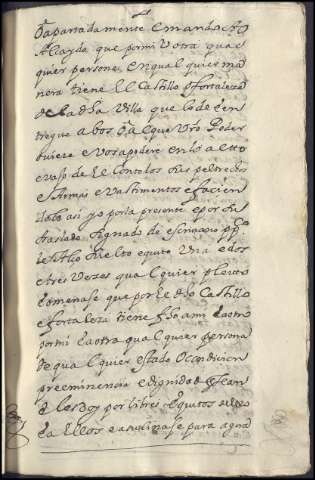 apartadamente e mando al dho
Alcayde que por mi V otra qual
quier persona en qual quier ma
nera tiene el Castillo e fortaleza
de la dha Villa que lo de e en
tregue a bos o al que Vro Poder
ouiere e vos apodere en lo alto
e vaxo de el Con todos sus peltrechos
e Armas e Vastimentos e facien
dolo asi yo por la presente e por su
traslado signado de escriuano puco
le Alço suelto e quito Vna e dos
e tres Vezes qual quier pleito
e omenaje que por el dho Castillo
e fortaleza tiene fho a mi o a otro
por mi o a otra qual quier persona
de qual quier estado O condicion
preeminencia e dignidad que sean
e los doy por libres e quitos
a ellos e a su linaje para agora